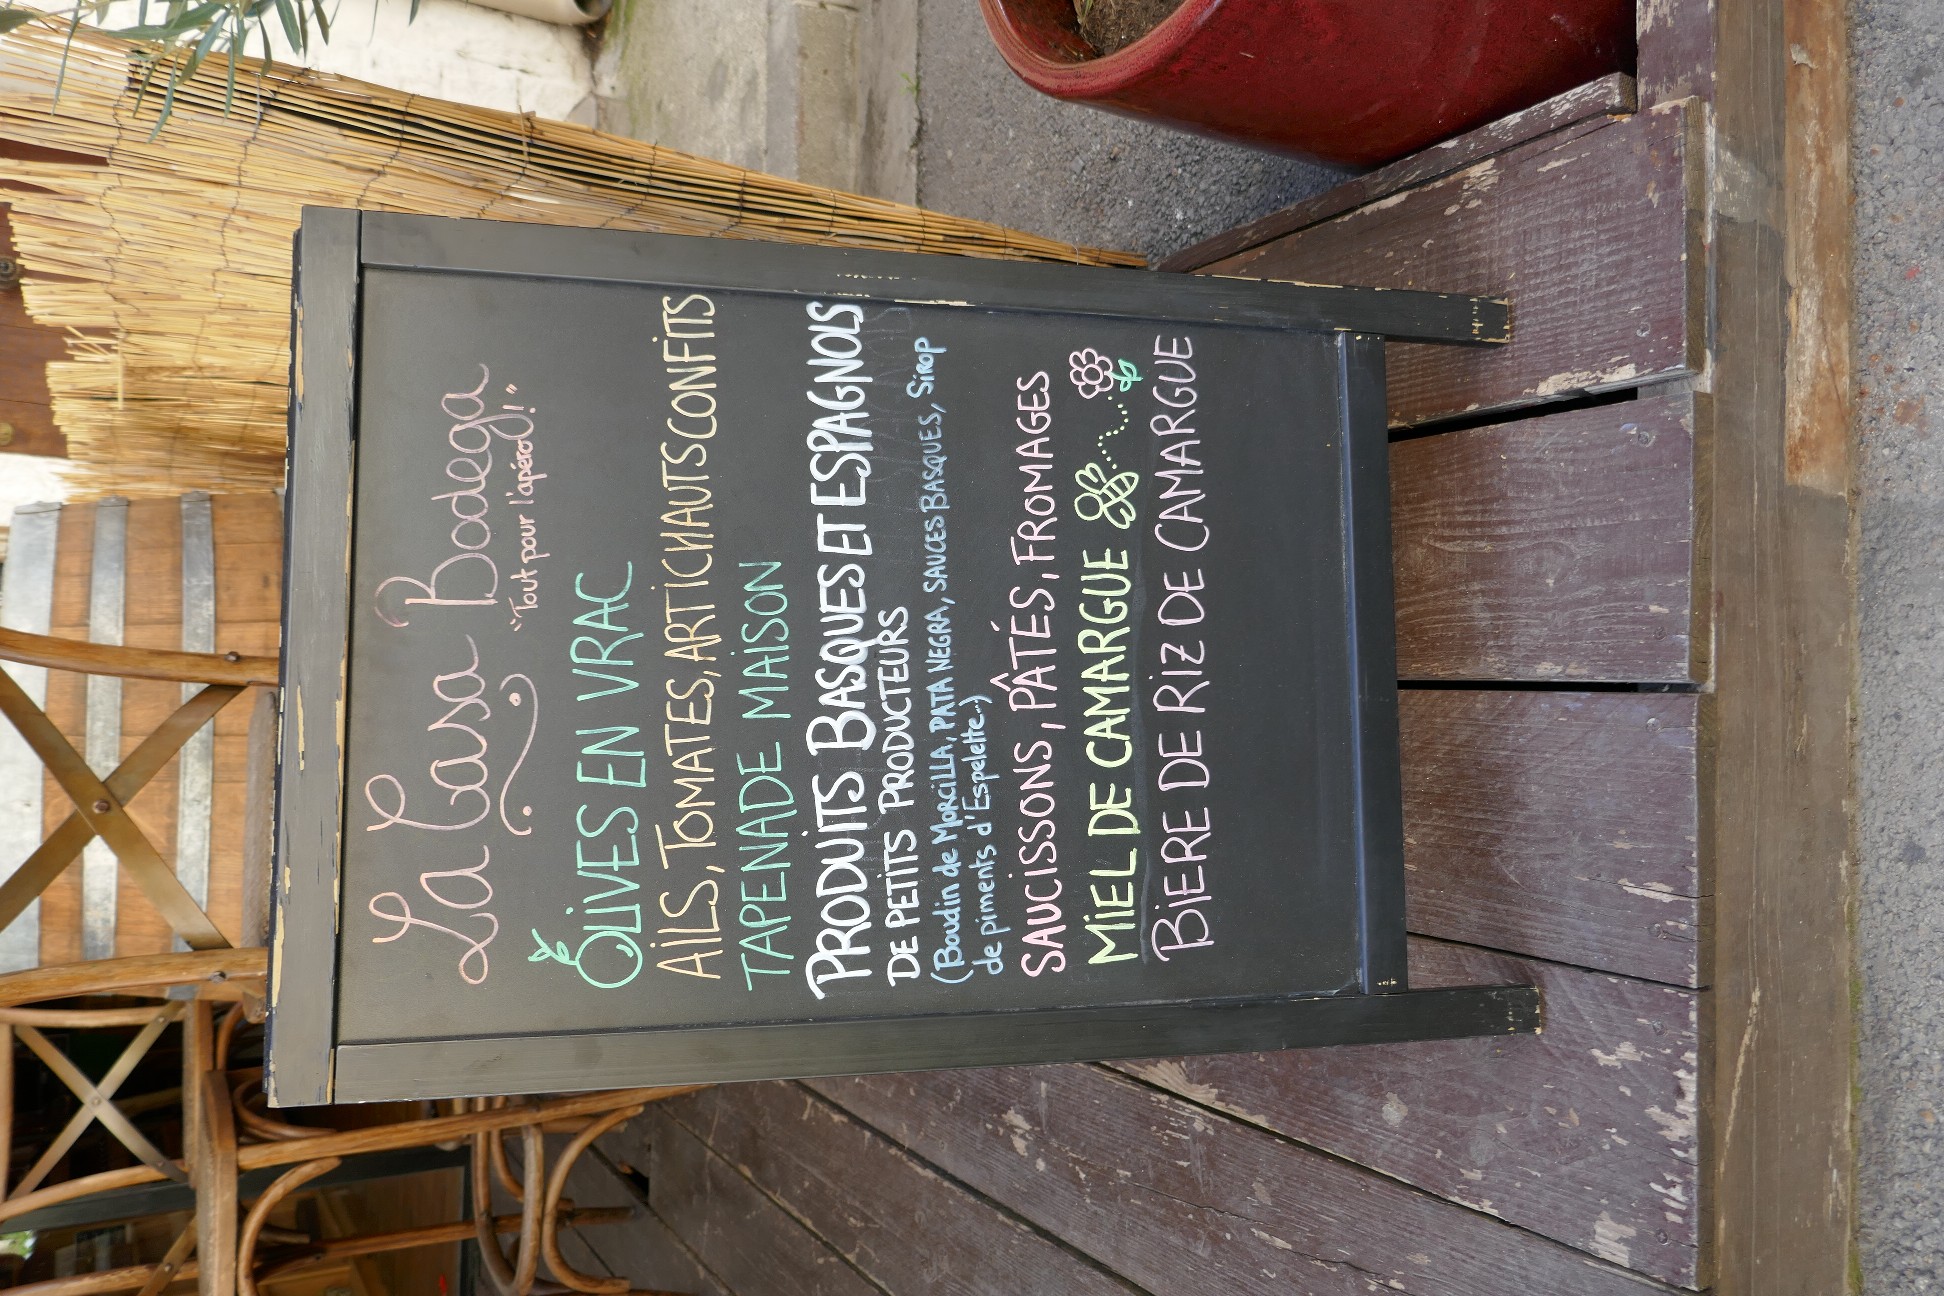 La Casa Bodega
"Tout pour l'apéro!"
OLIVES EN VRAC
AILS, TOMATES, ARTICHAUTS CONFITS
TAPENADE MAISON
PRODUITS BASQUES ET ESPAGNOLS
DE PETITS PRODUCTEURS
(Boudin de MORCILLA, PATA NEGRA, SAUCES BASQUES, SIROP
de piments d'Espelette...)
SAUCISSONS, PÂTÉS, FROMAGES
MIEL DE CAMARGUE
BIERE DE RIZ DE CAMARGUE